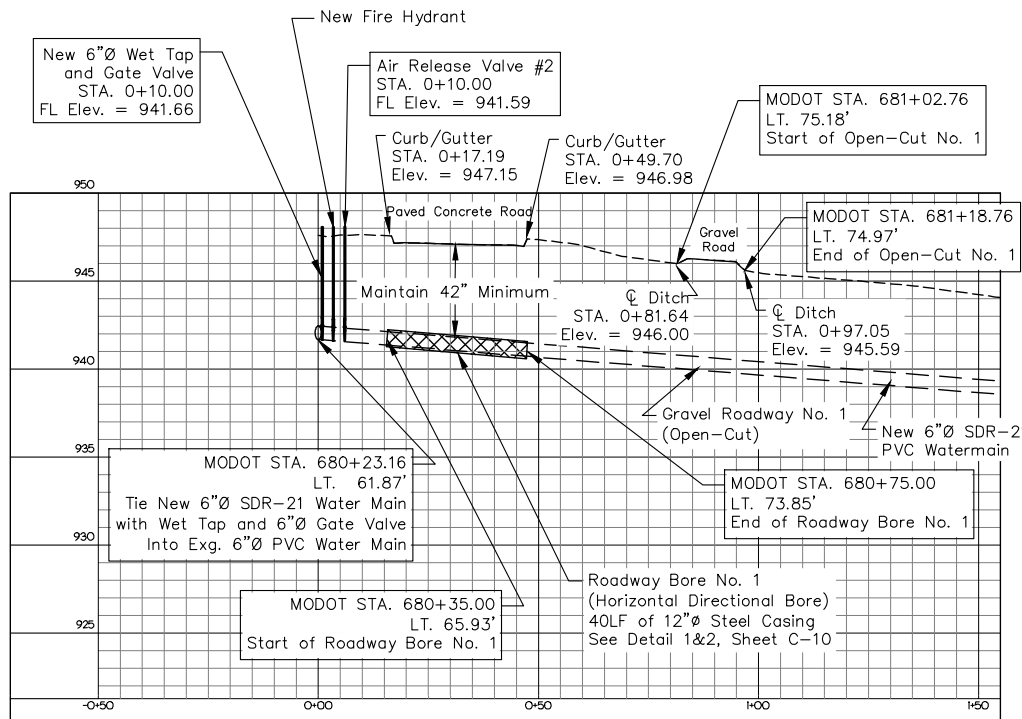 New Fire Hydrant
New 6"Ø Wet Tap
and Gate Valve
STA. 0+10.00
FL Elev. = 941.66
Air Release Valve #2
STA. 0+10.00
FL Elev. = 941.59
MODOT STA. 681+02.76
LT. 75.18'
Start of Open-Cut No. 1
Curb/Gutter
STA. 0+17.19
Elev. = 947.15
Curb/Gutter
STA. 0+49.70
Elev. = 946.98
950
Paved Concrete Road
Gravel
Road
MODOT STA. 681+18.76
LT. 74.97'
End of Open-Cut No. 1
945
Maintain 42" Minimum
℄ Ditch
STA. 0+81.64
Elev. = 946.00
℄ Ditch
STA. 0+97.05
Elev. = 945.59
940
Gravel Roadway No. 1
(Open-Cut)
New 6"Ø SDR-2
PVC Watermain
935
MODOT STA. 680+23.16
LT. 61.87'
Tie New 6"Ø SDR-21 Water Main
with Wet Tap and 6"Ø Gate Valve
Into Exg. 6"Ø PVC Water Main
MODOT STA. 680+75.00
LT. 73.85'
End of Roadway Bore No. 1
930
Roadway Bore No. 1
(Horizontal Directional Bore)
40LF of 12"ø Steel Casing
See Detail 1&2, Sheet C-10
MODOT STA. 680+35.00
LT. 65.93'
Start of Roadway Bore No. 1
925
-0+50
0+00
0+50
1+00
1+50